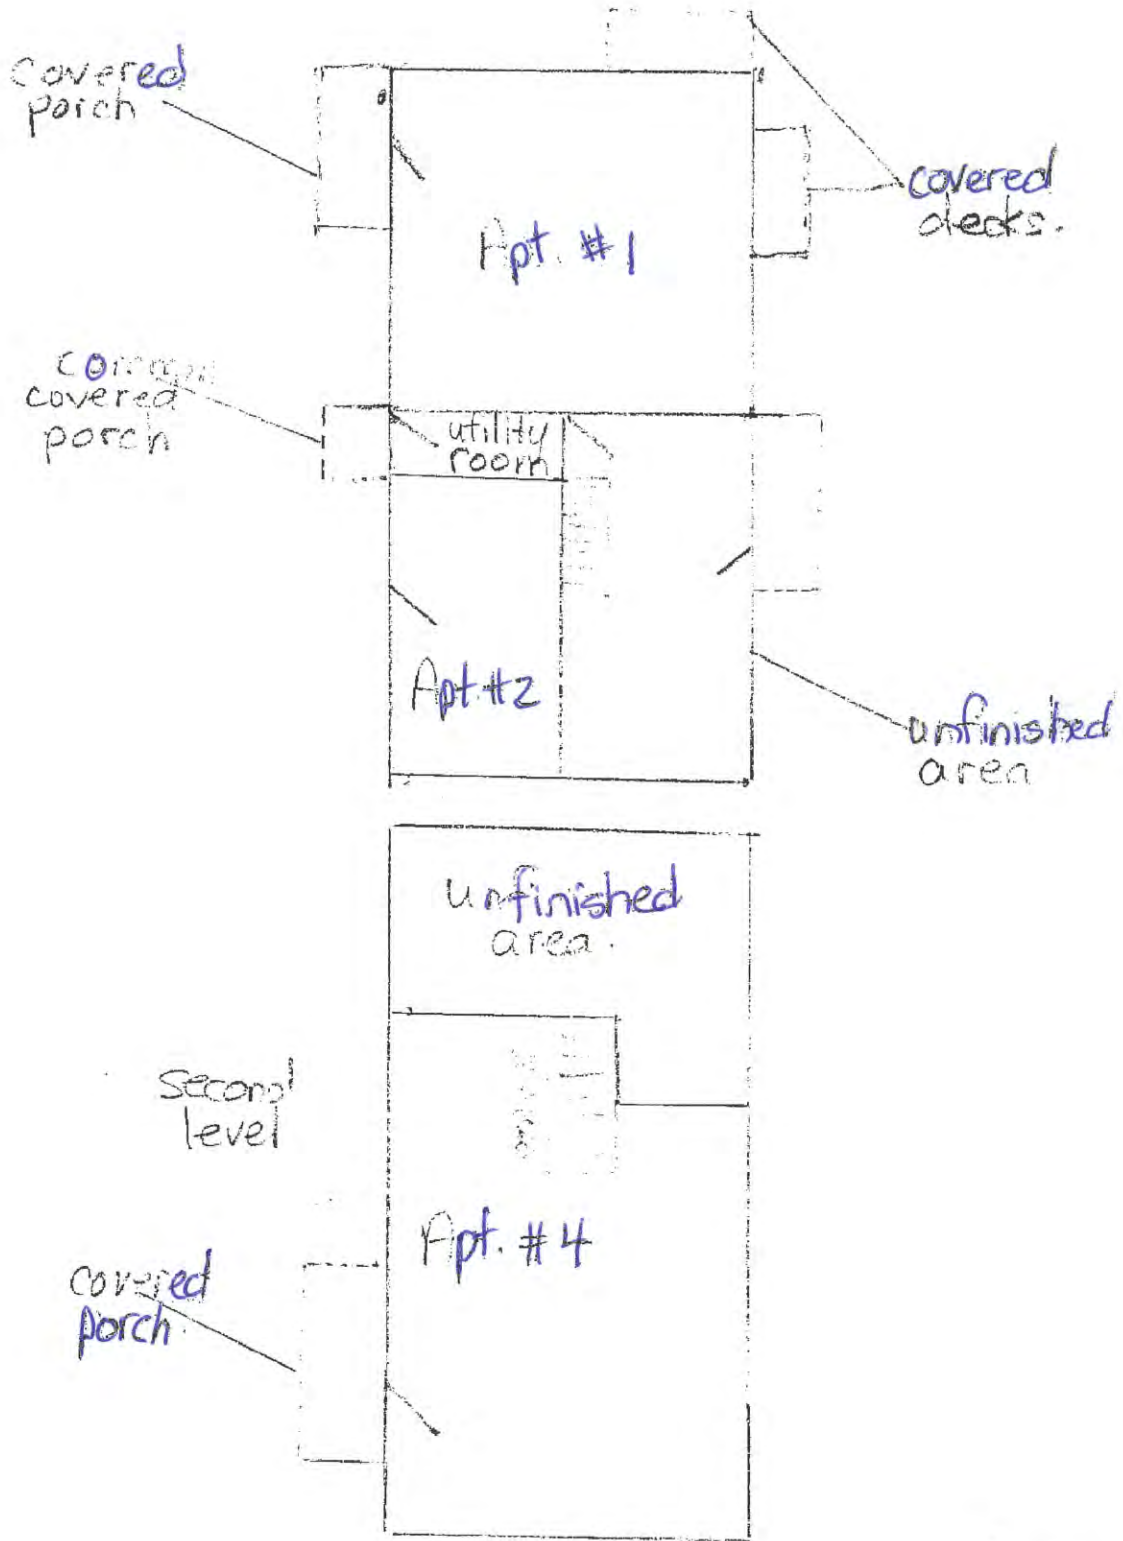 covered
porch
Apt. #1
covered
decks.
common
covered
porch
utility
room
Apt. #2
unfinished
area
unfinished
area.
second
level
Apt. #4
covered
porch.